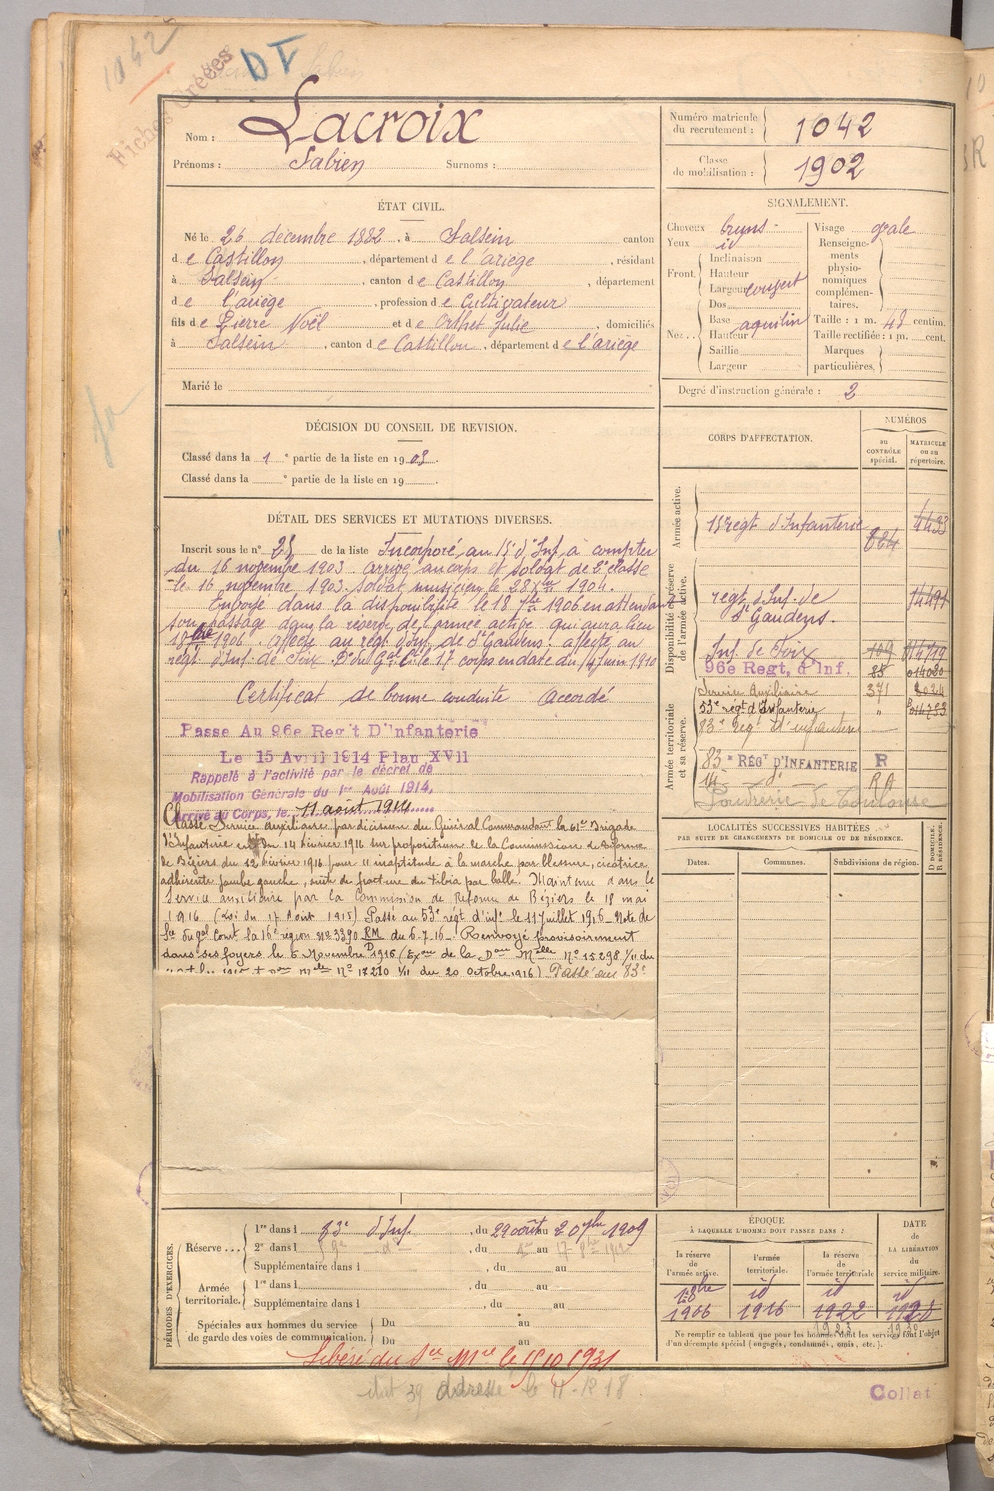 1042
DV
Fiches Créées
Nom : Lacroix
Prénoms : Fabien Surnoms :
Numéro matricule du recrutement : 1042
Classe de mobilisation : 1902
ÉTAT CIVIL.
Né le 26 décembre 1882, à Salsein canton
de Castillon, département de l'ariège, résidant
à Salsein, canton de Castillon, département
de l'ariège, profession de Cultivateur
fils de Pierre Noël et de Orthet Julie, domiciliés
à Salsein, canton de Castillon, département de l'ariège
Marié le
SIGNALEMENT.
Cheveux bruns
Yeux id
Front. Inclinaison
Hauteur
Largeur couvert
Nez.. Dos
Base aquilin
Hauteur
Saillie
Largeur
Visage ovale
Renseignements physionomiques complémentaires.
Taille : 1 m. 48 centim.
Taille rectifiée : 1 m. cent.
Marques particulières,
Degré d'instruction générale : 2
DÉCISION DU CONSEIL DE REVISION.
Classé dans la 1e partie de la liste en 1903.
Classé dans la e partie de la liste en 19
DÉTAIL DES SERVICES ET MUTATIONS DIVERSES.
Inscrit sous le n° 25 de la liste Incorporé au 15e d'Inf. à compter
du 16 novembre 1903. arrivé au corps et soldat de 2e classe
le 16 novembre 1903. soldat musicien le 28 Xbre 1904.
Envoyé dans la disponibilité le 18 7bre 1906 en attendant
son passage dans la réserve de l'armée active qui aura lieu
1er 8bre 1906. affecté au régt d'Inf. de St Gaudens. affecté au
régt d'Inf. de Foix. Don Gal Ct le 17e corps en date du 1910
Certificat de bonne conduite accordé
Passé Au 96e Reg't D'Infanterie
Le 15 Avril 1914 Plan XVII
Rappelé à l'activité par le décret de
Mobilisation Générale du 1er Août 1914,
Arrivé au Corps, le 11 août 1914
Classé Service Auxiliaire par décision du Général Commandant la 61e Brigade
d'Infanterie en du 14 février 1916 sur proposition de la Commission de Réforme
de Béziers du 12 février 1916 pour "inaptitude à la marche par blessure, cicatrice
adhérente jambe gauche, suite de fracture du tibia par balle. Maintenu dans le
Service auxiliaire par la Commission de Réforme de Béziers le 18 mai
1916 (Loi du 17 Août 1915) Passé au 53e régt d'inf. le 11 juillet 1916 - Note de
du gal Comt la 16e région N° 3390 RM du 6.7.16 - Renvoyé provisoirement
dans ses foyers le 6 Novembre 1916 (Exon de la Don Mlle N° 15298 1/11 du
Mlle N° 17210 1/11 du 20 octobre 1916) Passé au 83e
CORPS D'AFFECTATION.
NUMÉROS
au contrôle spécial.
matricule ou au répertoire.
Armée active.
15e régt d'Infanterie 664 4493
Disponibilité et réserve de l'armée active.
régt d'Inf. de St Gaudens.
Inf. de Foix 109
96e Regt, d'Inf. 85 014020
Armée territoriale et sa réserve.
Service Auxiliaire 371
53e régt d'Infanterie "
83e Régt d'infanterie
83e RÉGT D'INFANTERIE R
14 do RA
Poudrerie de Toulouse
LOCALITÉS SUCCESSIVES HABITÉES
PAR SUITE DE CHANGEMENTS DE DOMICILE OU DE RÉSIDENCE.
Dates. Communes. Subdivisions de région. D DOMICILE. R RÉSIDENCE.
PÉRIODES D'EXERCICES.
Réserve...
1re dans l 83e d'Inf. , du 29 août au 20 7bre 1909
2e dans l , du au 17 7bre
Supplémentaire dans l , du au
Armée territoriale.
1re dans l , du au
Supplémentaire dans l , du au
Spéciales aux hommes du service de garde des voies de communication.
Du au
Du au
ÉPOQUE
À LAQUELLE L'HOMME DOIT PASSER DANS :
la réserve de l'armée active.
l'armée territoriale.
la réserve de l'armée territoriale
DATE DE LA LIBÉRATION du service militaire.
1er 8bre 1906
id 1916
id 1922
id 1928
Ne remplir ce tableau que pour les hommes dont les services font l'objet
d'un décompte spécial (engagés, condamnés, omis, etc.).
Libéré du Sce Mre le 15.10.1931
état 39 adressé le
Collat